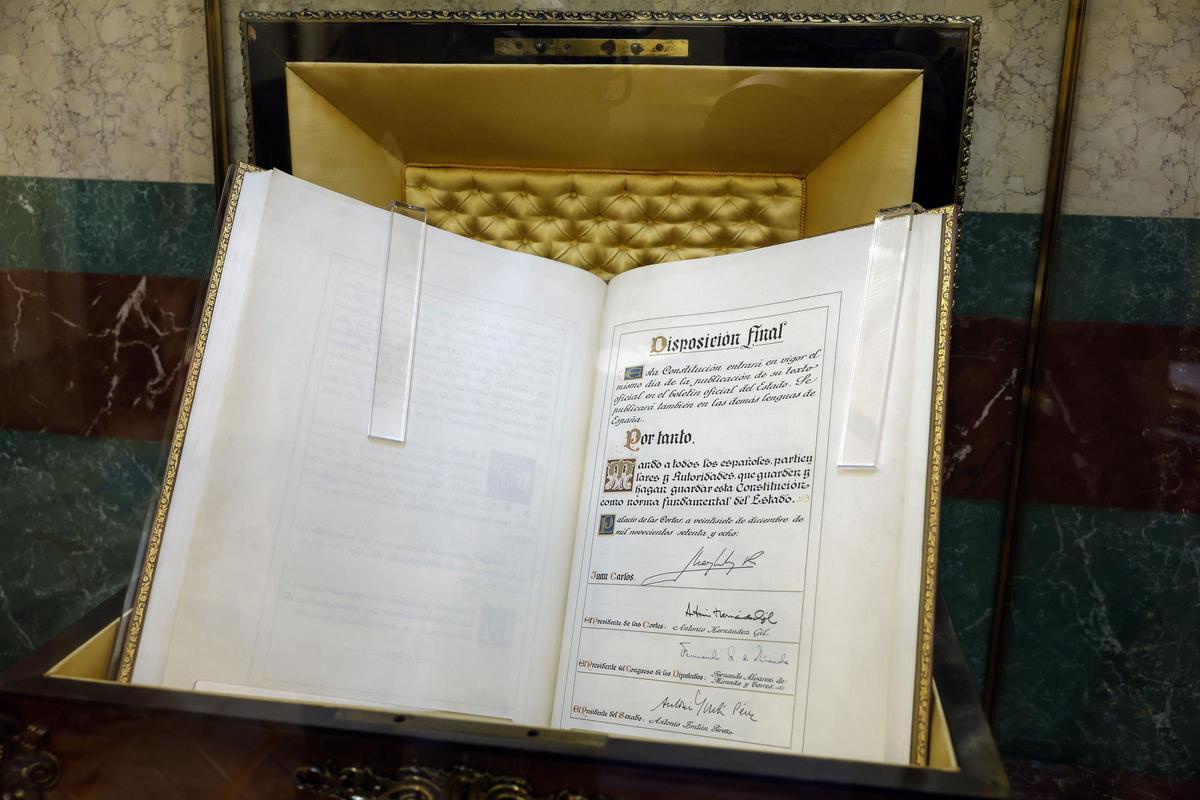 Disposición final
Esta Constitución entrará en vigor el
mismo día de la publicación de su texto
oficial en el boletín oficial del Estado. Se
publicará también en las demás lenguas de
España.
Por tanto,
Mando a todos los españoles, particu
lares y Autoridades, que guarden y
hagan guardar esta Constitución
como norma fundamental del Estado.
Palacio de las Cortes, a veintisiete de diciembre de
mil novecientos setenta y ocho:
Juan Carlos.
Antonio Hernández Gil
El Presidente de las Cortes: Antonio Hernández Gil.
El Presidente del Congreso de los Diputados: Fernando Álvarez de
Miranda y Torres.
El Presidente del Senado: Antonio Fontán Pérez